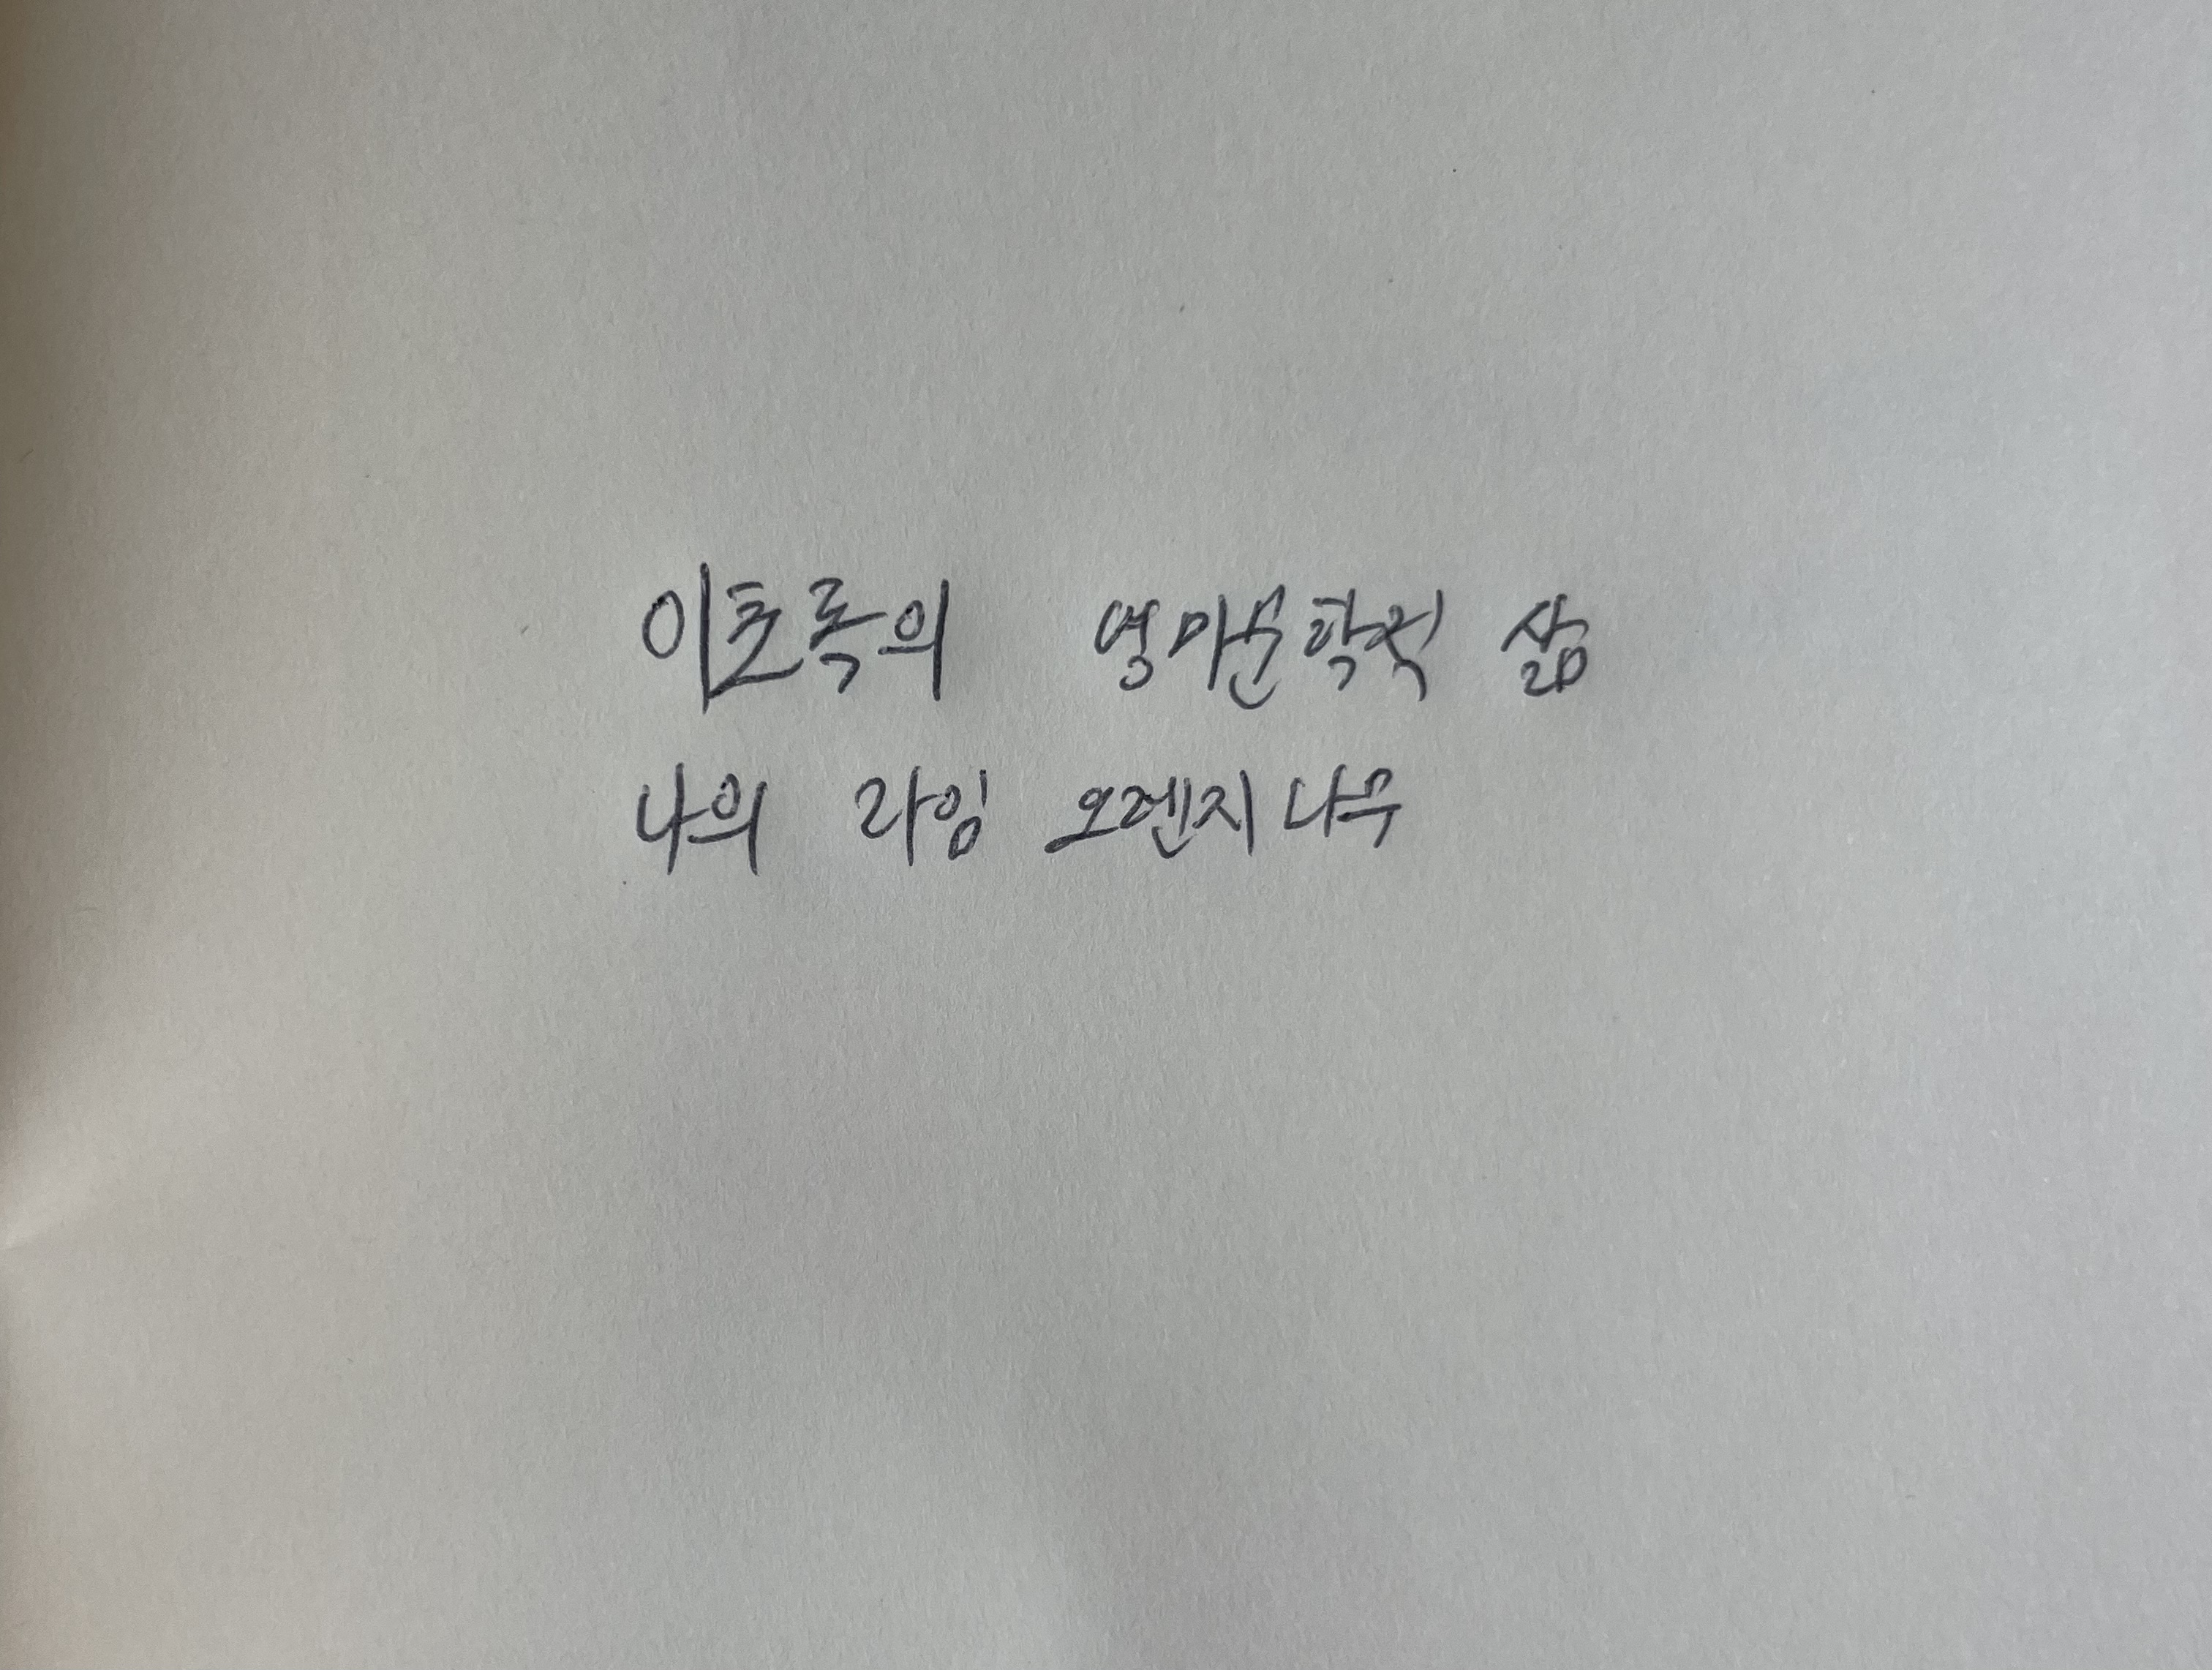 이초록의 영미문학적 삶
나의 라임 오렌지나무